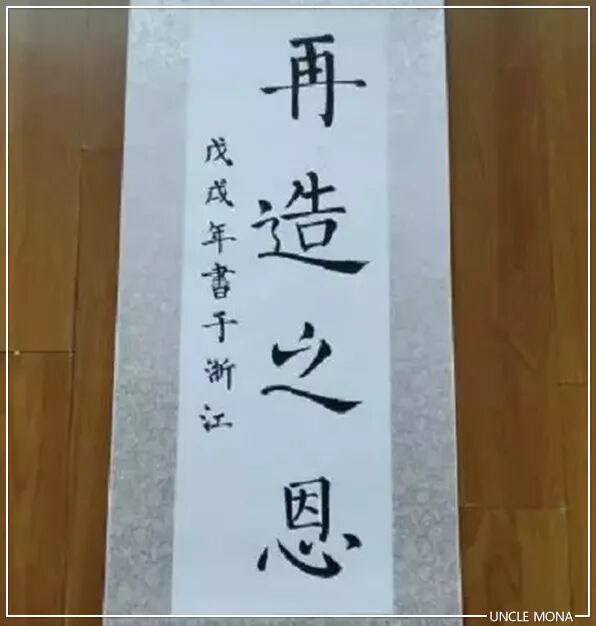 再造之恩
戊戌年書于浙江
UNCLE MONA